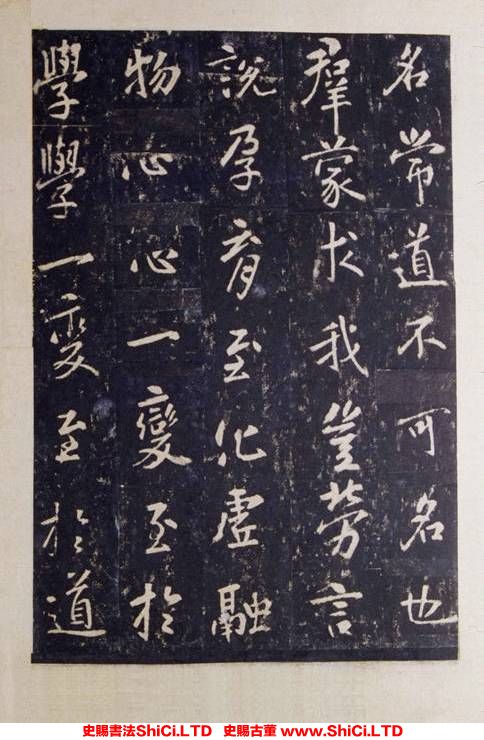 名常道不可名也
羣蒙求我豈勞言
說孕育至化虛融
物心心一變至於
學學一變至於道
史賜書法ShiCi.LTD 史賜古董 www.ShiCi.LTD